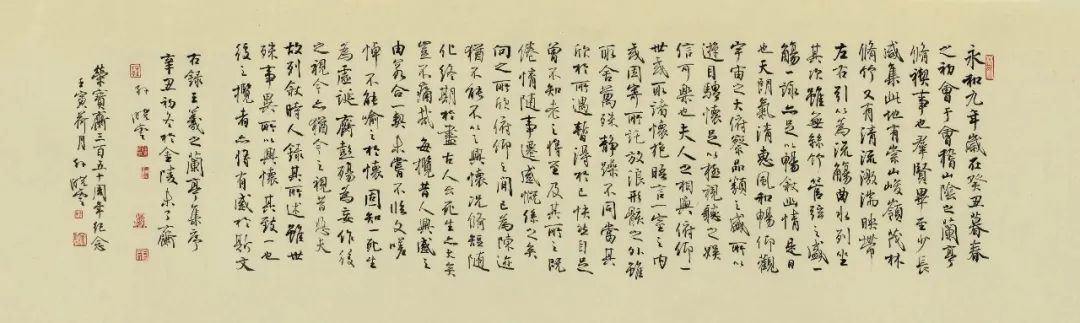 永和九年歲在癸丑暮春
之初會于會稽山陰之蘭亭
脩禊事也群賢畢至少長
咸集此地有崇山峻嶺茂林
脩竹又有清流激湍映帶
左右引以為流觴曲水列坐
其次雖無絲竹管弦之盛一
觴一詠亦足以暢敘幽情是日
也天朗氣清惠風和暢仰觀
宇宙之大俯察品類之盛所以
遊目騁懷足以極視聽之娛
信可樂也夫人之相與俯仰一
世或取諸懷抱晤言一室之內
或因寄所託放浪形骸之外雖
取舍萬殊靜躁不同當其
欣於所遇暫得於己怏然自足
曾不知老之將至及其所之既
倦情隨事遷感慨係之矣
向之所欣俯仰之間已為陳迹
猶不能不以之興懷況脩短隨
化終期於盡古人云死生亦大矣
豈不痛哉每攬昔人興感之
由若合一契未嘗不臨文嗟
悼不能喻之於懷固知一死生
為虛誕齊彭殤為妄作後
之視今亦猶今之視昔悲夫
故列敘時人錄其所述雖世
殊事異所以興懷其致一也
後之攬者亦將有感於斯文
右錄王羲之蘭亭集序
辛丑初冬於金陵未了齋
孫曉雲
榮寶齋三百五十周年紀念
壬寅荷月孫曉雲